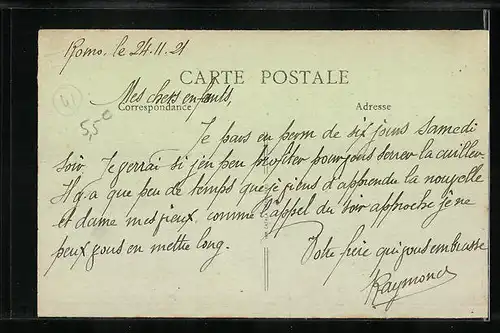 Romo, le 24.11.21
CARTE POSTALE
Mes chers enfants,
Correspondance
Adresse
41
5,5€
Je pars en perm de six jours samedi
soir. Je verrai si j'en peu profiter pour vous serrer la cuiller.
Il y a que peu de temps que je viens d'apprendre la nouvelle
et dame mes vieux, comme l'appel du soir approche je ne
peux vous en mettre long.
Votre frère qui vous embrasse
Raymond